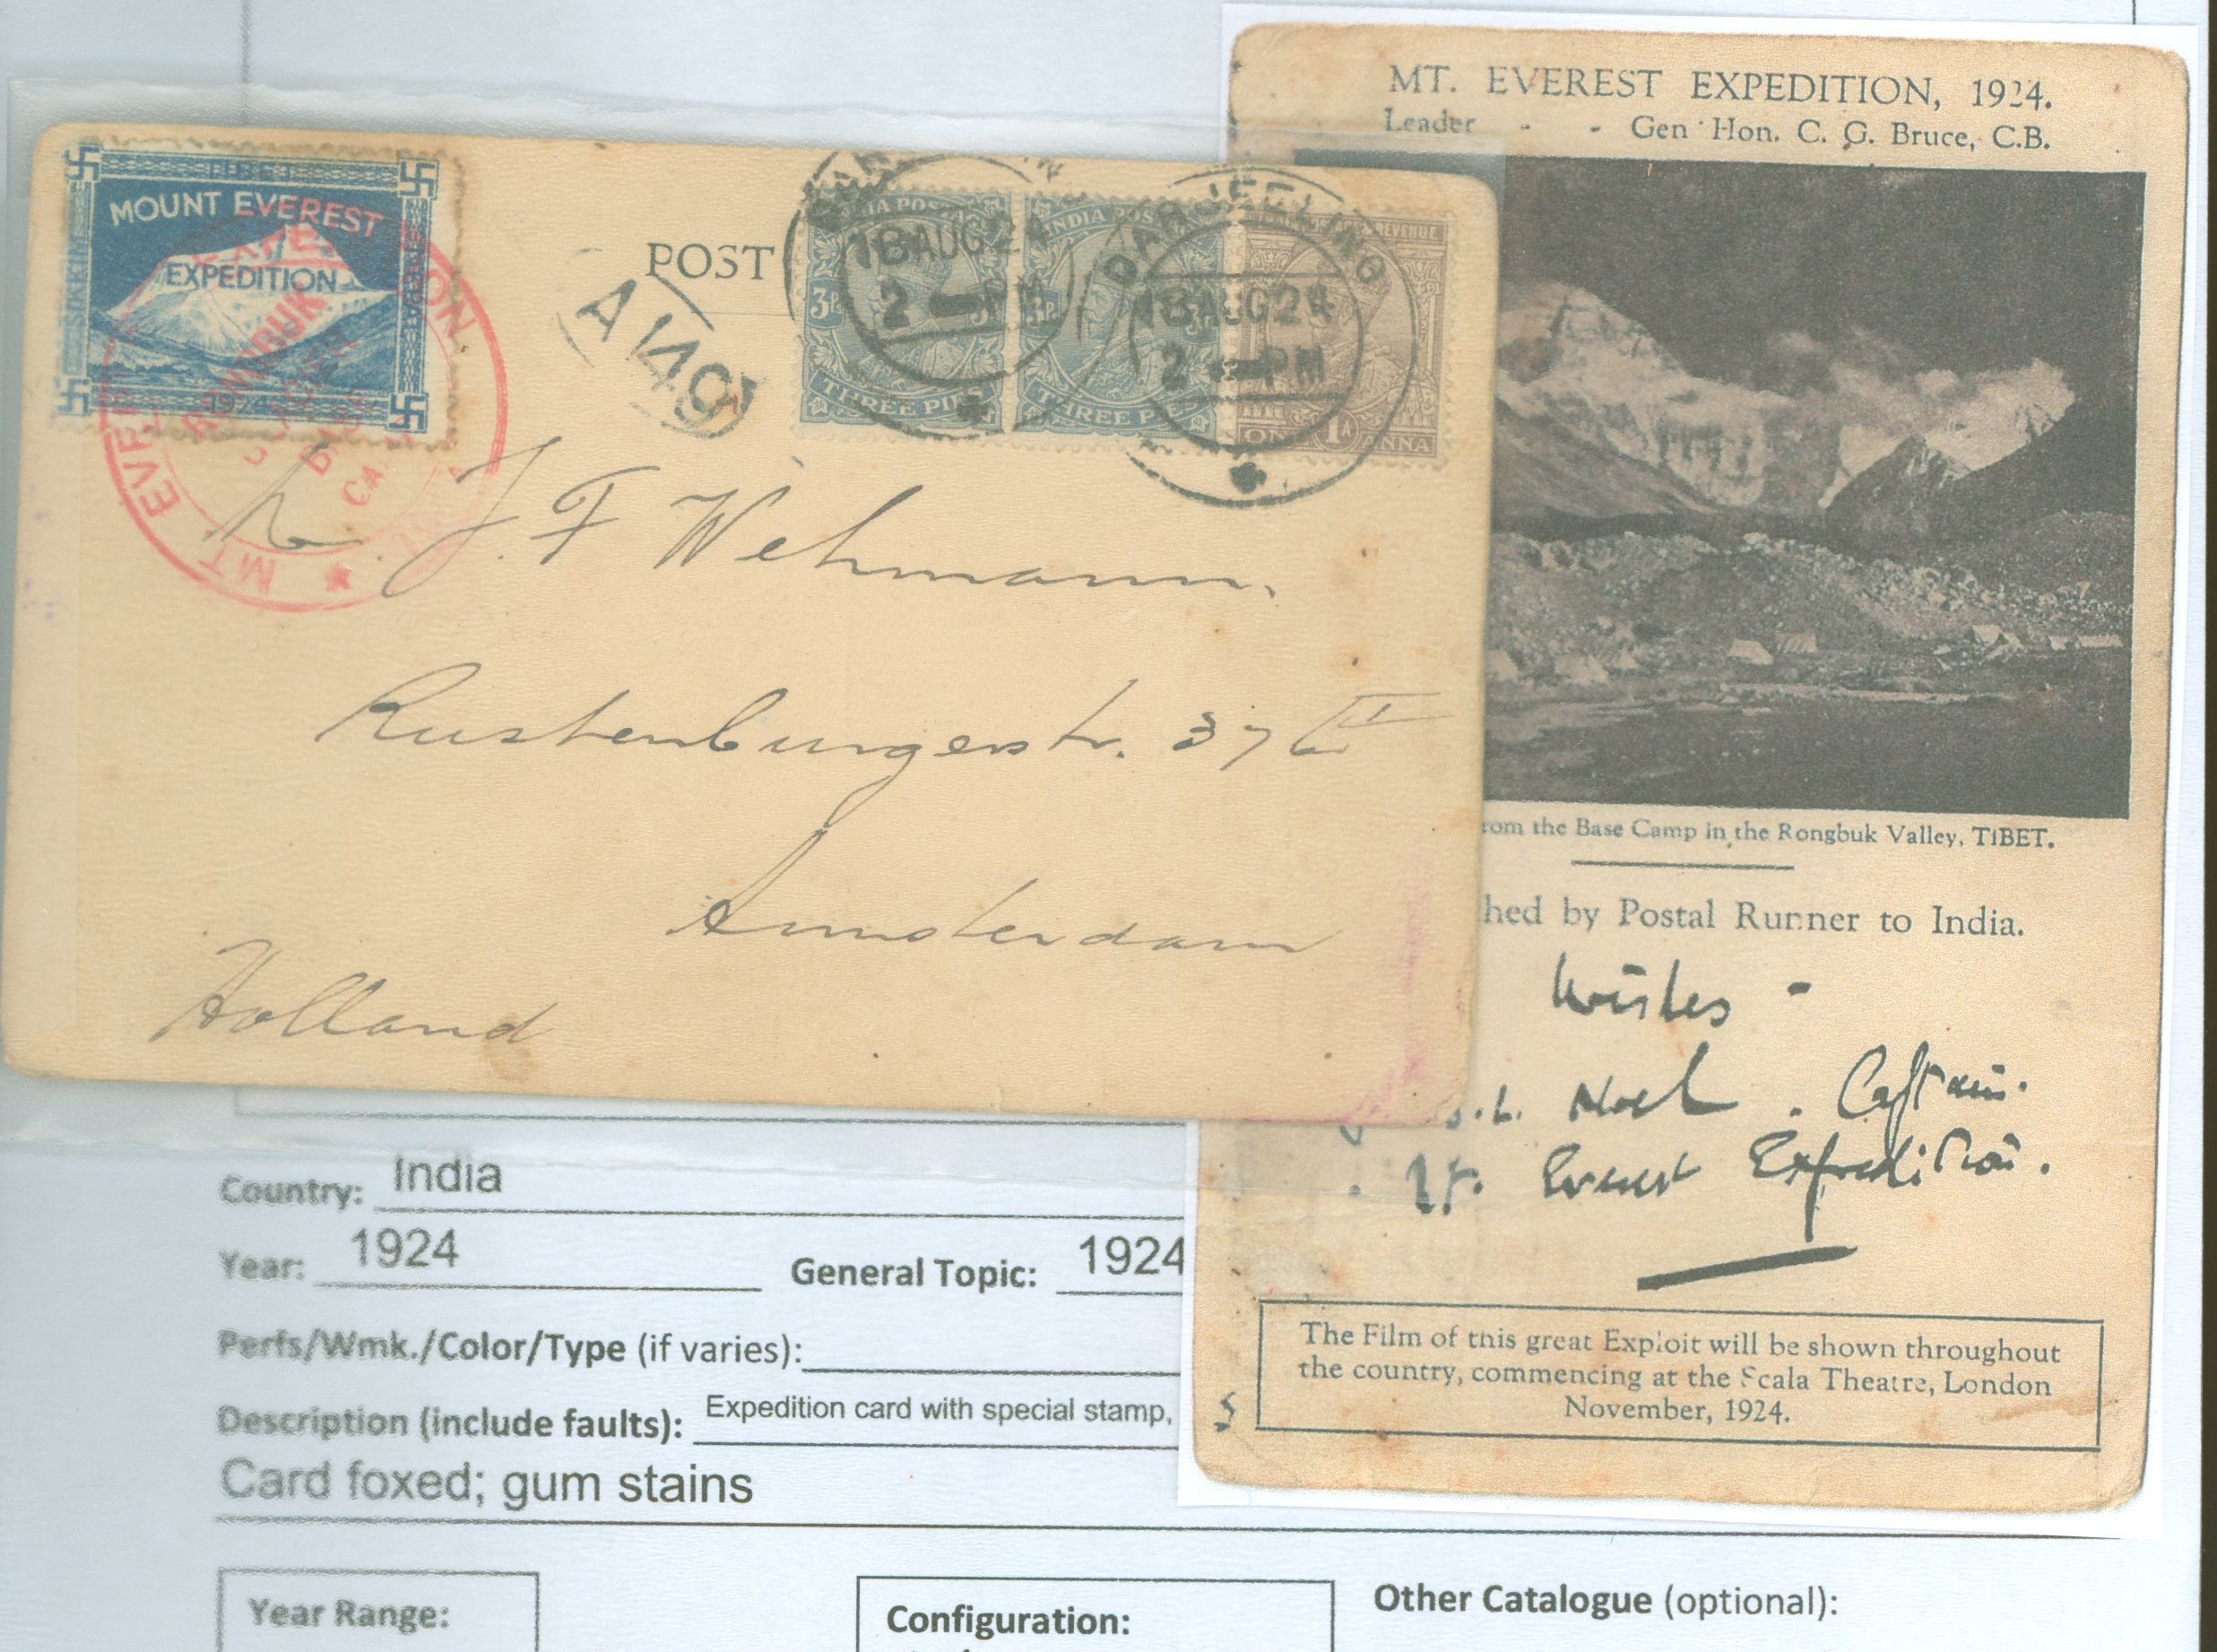 TIBET
MOUNT EVEREST
EXPEDITION
SIKKIM
1924
MT EVEREST EXPEDITION
RONGBUK
GLACIER
BASE
CAMP
POST
A 149
DARJEELING
18 AUG 24
2 - PM
INDIA POSTAGE
3Ps
THREE PIES
INDIA POSTAGE
3Ps
THREE PIES
DARJEELING
18 AUG 24
2 - PM
REVENUE
1A
ONE ANNA
J. F Wehmann.
Rustenburgerstr. 37 II
Amsterdam
Holland
MT. EVEREST EXPEDITION, 1924.
Leader - - Gen Hon. C. G. Bruce, C.B.
rom the Base Camp in the Rongbuk Valley, TIBET.
hed by Postal Runner to India.
Wishes -
J.L. Noel. Captain.
Mt. Everest Expedition.
The Film of this great Exploit will be shown throughout
the country, commencing at the Scala Theatre, London
November, 1924.
5
Country: India
Year: 1924 General Topic: 1924
Perfs/Wmk./Color/Type (if varies):
Description (include faults): Expedition card with special stamp,
Card foxed; gum stains
Year Range:
Configuration:
Other Catalogue (optional):